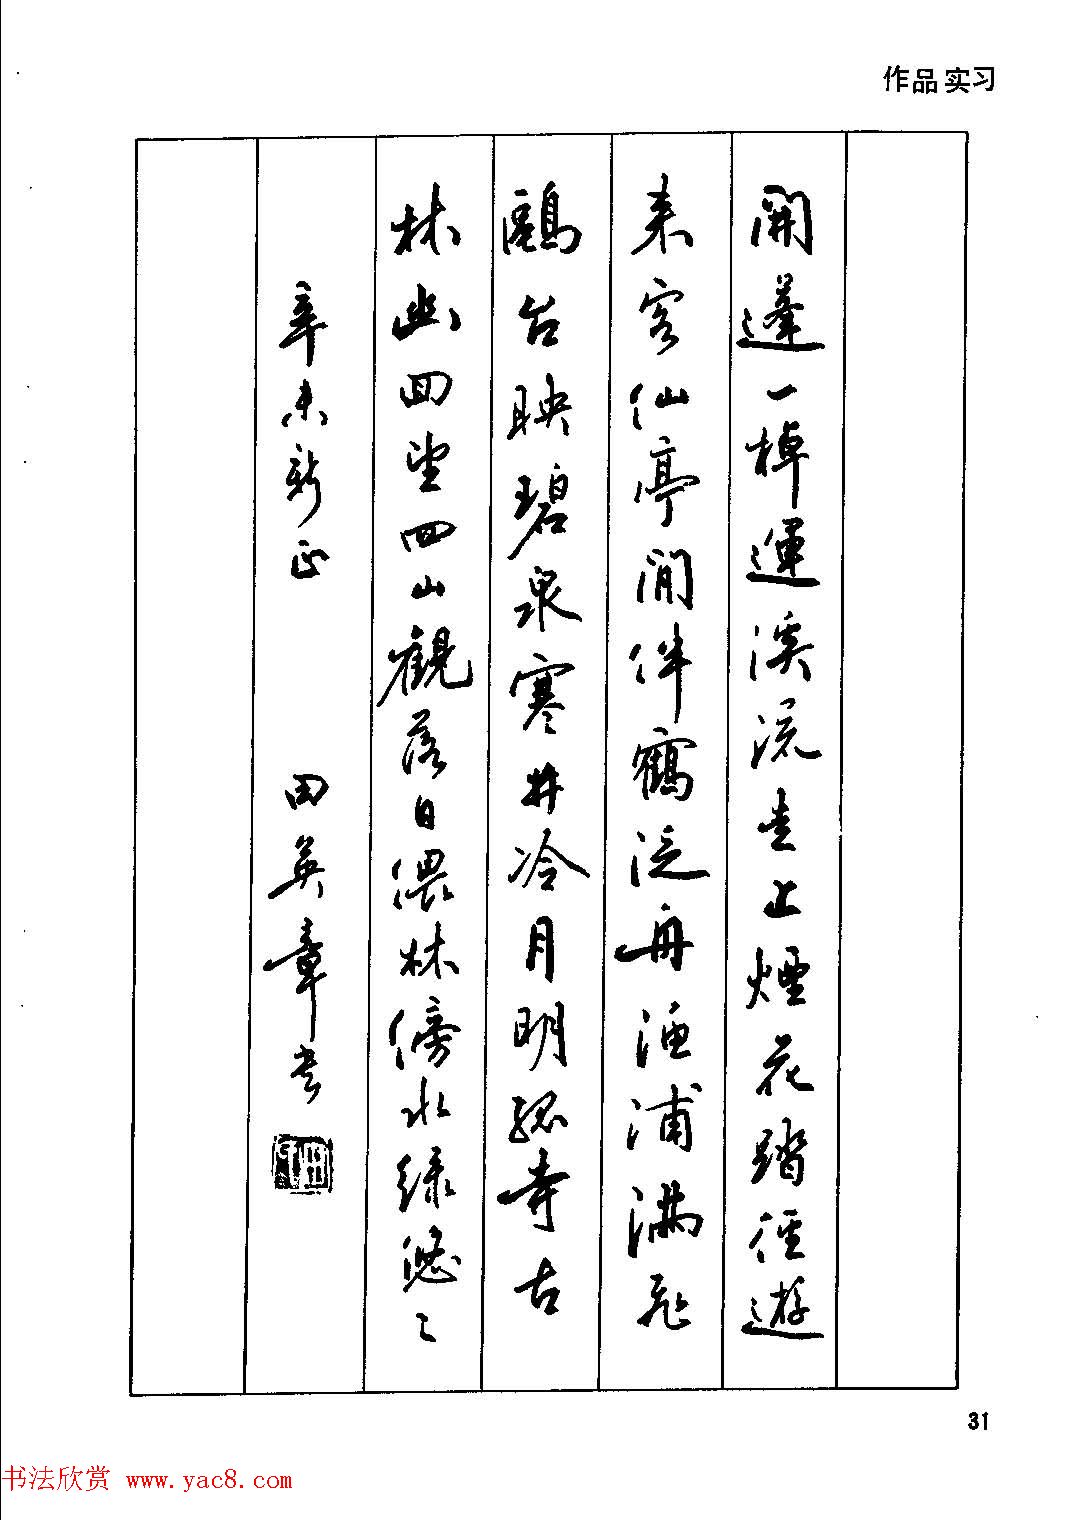 作品实习
開蓬一棹遠溪流走上煙花踏徑遊
來客仙亭閒伴鶴泛舟漁浦滿飛
鷗台映碧泉寒井冷月明孤寺古
林幽回望四山觀落日偎林傍水綠悠々
辛未新正 田英章书
31
书法欣赏 www.yac8.com